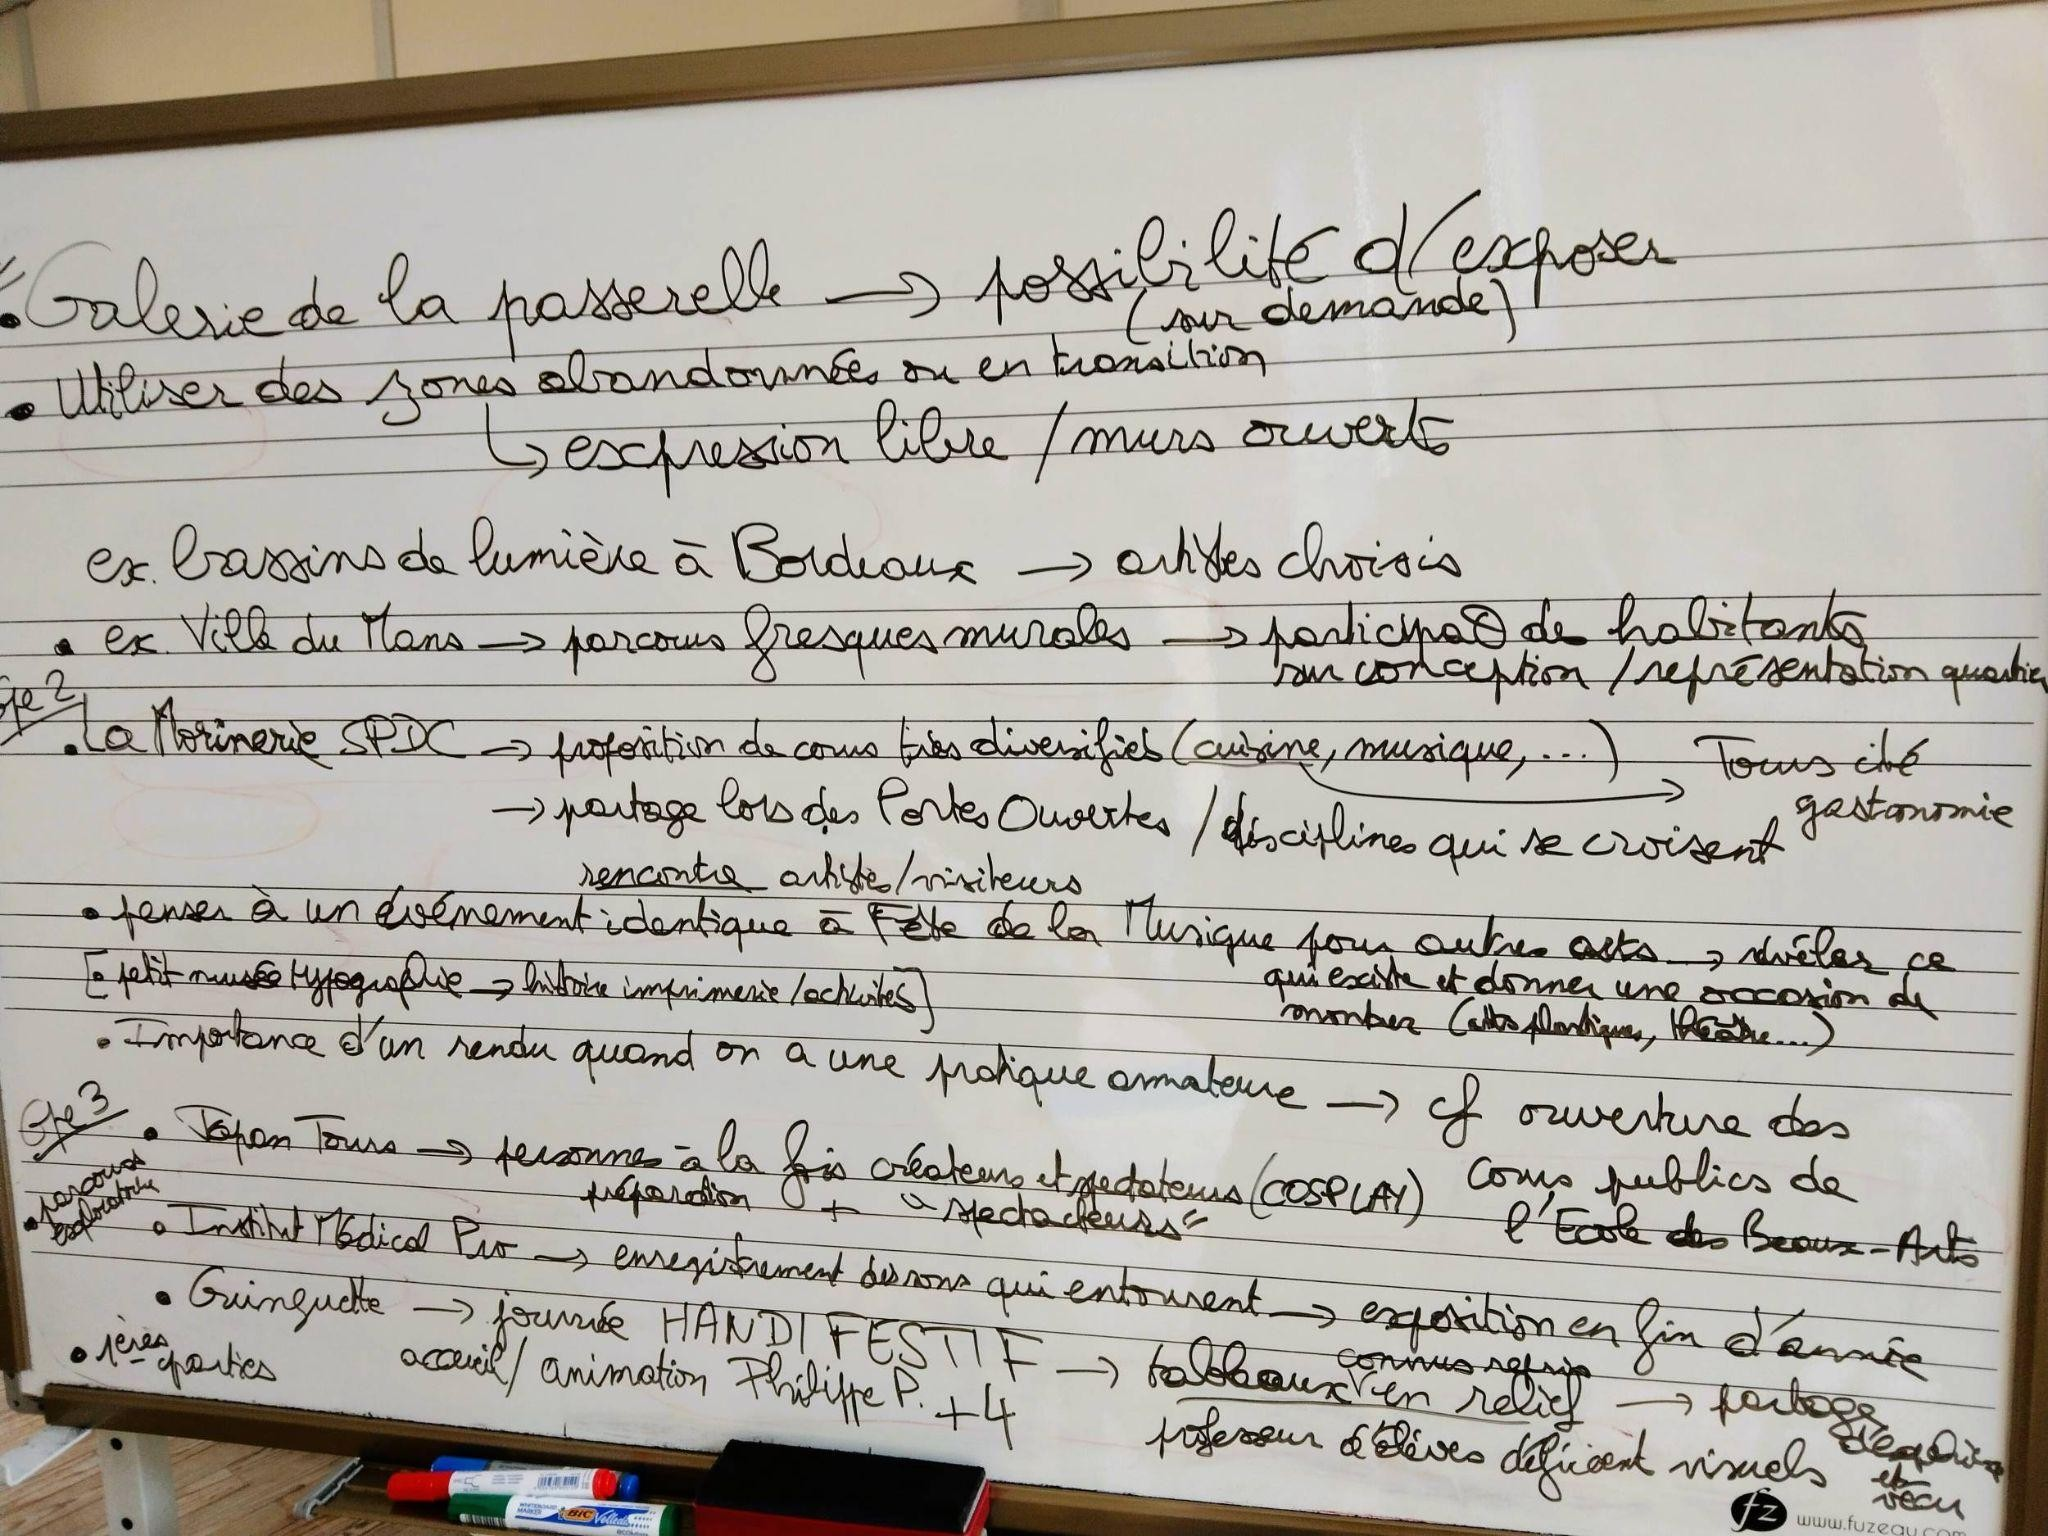 • Galerie de la passerelle → possibilité d'exposer
(sur demande)
• Utiliser des zones abandonnées ou en transition
↳ expression libre / murs ouverts
ex. bassins de lumière à Bordeaux → artistes choisis
• ex. Ville du Mans → parcours fresques murales → participa⊖ de habitants
sur conception / représentation quartier
Gpe 2
• La Morinerie SPDC → proposition de cours très diversifiés (cuisine, musique, ...) → Tours cité
gastronomie
→ partage lors des Portes Ouvertes / disciplines qui se croisent
rencontre artistes/visiteurs
• penser à un événement identique à Fête de la Musique pour autres arts → révéler ce
qui existe et donner une occasion de
montrer (arts plastiques, théâtre...)
[• petit musée typographie → histoire imprimerie / activités]
• Importance d'un rendu quand on a une pratique amateure → cf ouverture des
cours publics de
l'Ecole des Beaux-Arts
Gpe 3
• Japan Tours → personnes à la fois créateurs et spectateurs (COSPLAY)
préparation + "spectacteurs"
• parcours
exploratoire
• Institut Médical Pro → enregistrement des sons qui entourent → exposition en fin d'année
• Guinguette → journée HANDI FESTIF → tableaux connus repris en relief → partage
d'expérience
et
vécu
accueil / animation Philippe P. +4
professeur d'élèves déficient visuels
• 1ères
parties
BIC Velleda
WHITEBOARD MARKER
fz www.fuzeau.com